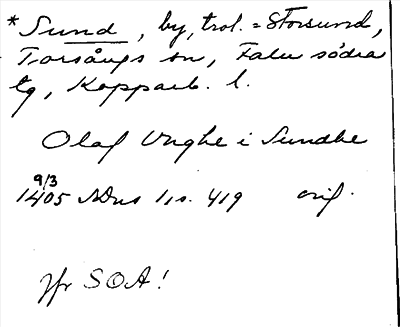 *Sund, by, trol. = Storsund,
Torsångs sn, Falu södra
tg, Kopparb. l.
Olaf Unghe i Sundhe
9/3
1405 SDns 1, s. 419 orig.
Jfr SOA!